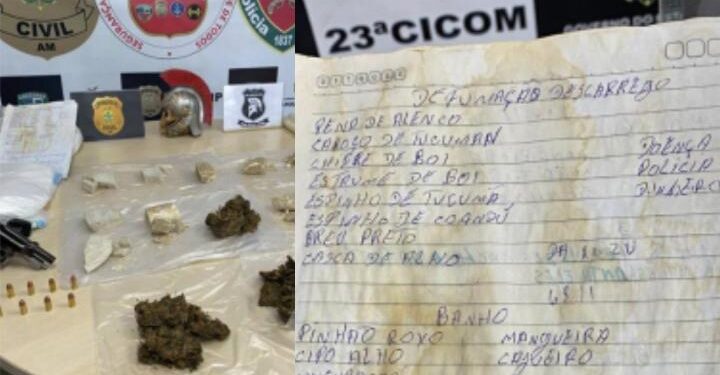 CIVIL
AM
SEGURANÇA
DE TODOS
1837
23ªCICOM
GOVERNO DO
DEFUMAÇÃO DESCARREGO
PENA DE
CAROÇO DE TUCUMAN
CHIFRE DE BOI
DOENÇA
ESTRUME DE BOI
POLICIA
ESPINHO DE TUCUMÃ,
DINHEIRO
ESPINHO DE COANDÚ
BREU PRETO
CASCA DE ALHO
BANHO
PINHÃO ROXO
MANGUEIRA
CIPO ALHO
CAJUEIRO